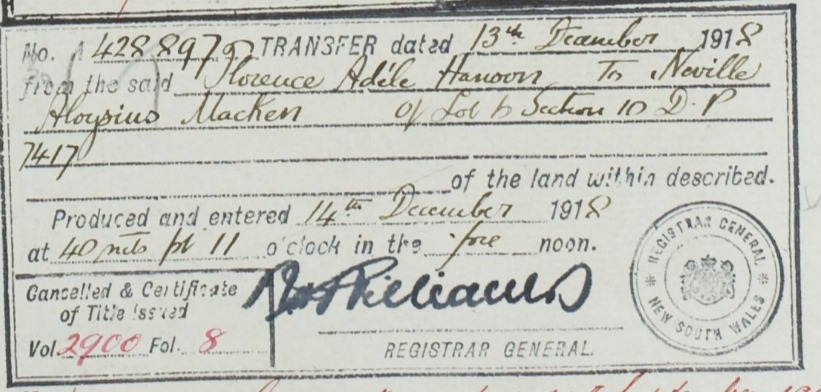 No. A 428897 TRANSFER dated 13th December 1918
from the said Florence Adéle Hanoon To Neville
Aloysius Macken of Lot 6 Section 10 D.P
7417
of the land within described.
Produced and entered 14th December 1918
at 40 mts pt 11 o'clock in the fore noon.
Cancelled & Certificate
of Title Issued
Vol. 2900 Fol. 8
REGISTRAR GENERAL.
REGISTRAR GENERAL
NEW SOUTH WALES